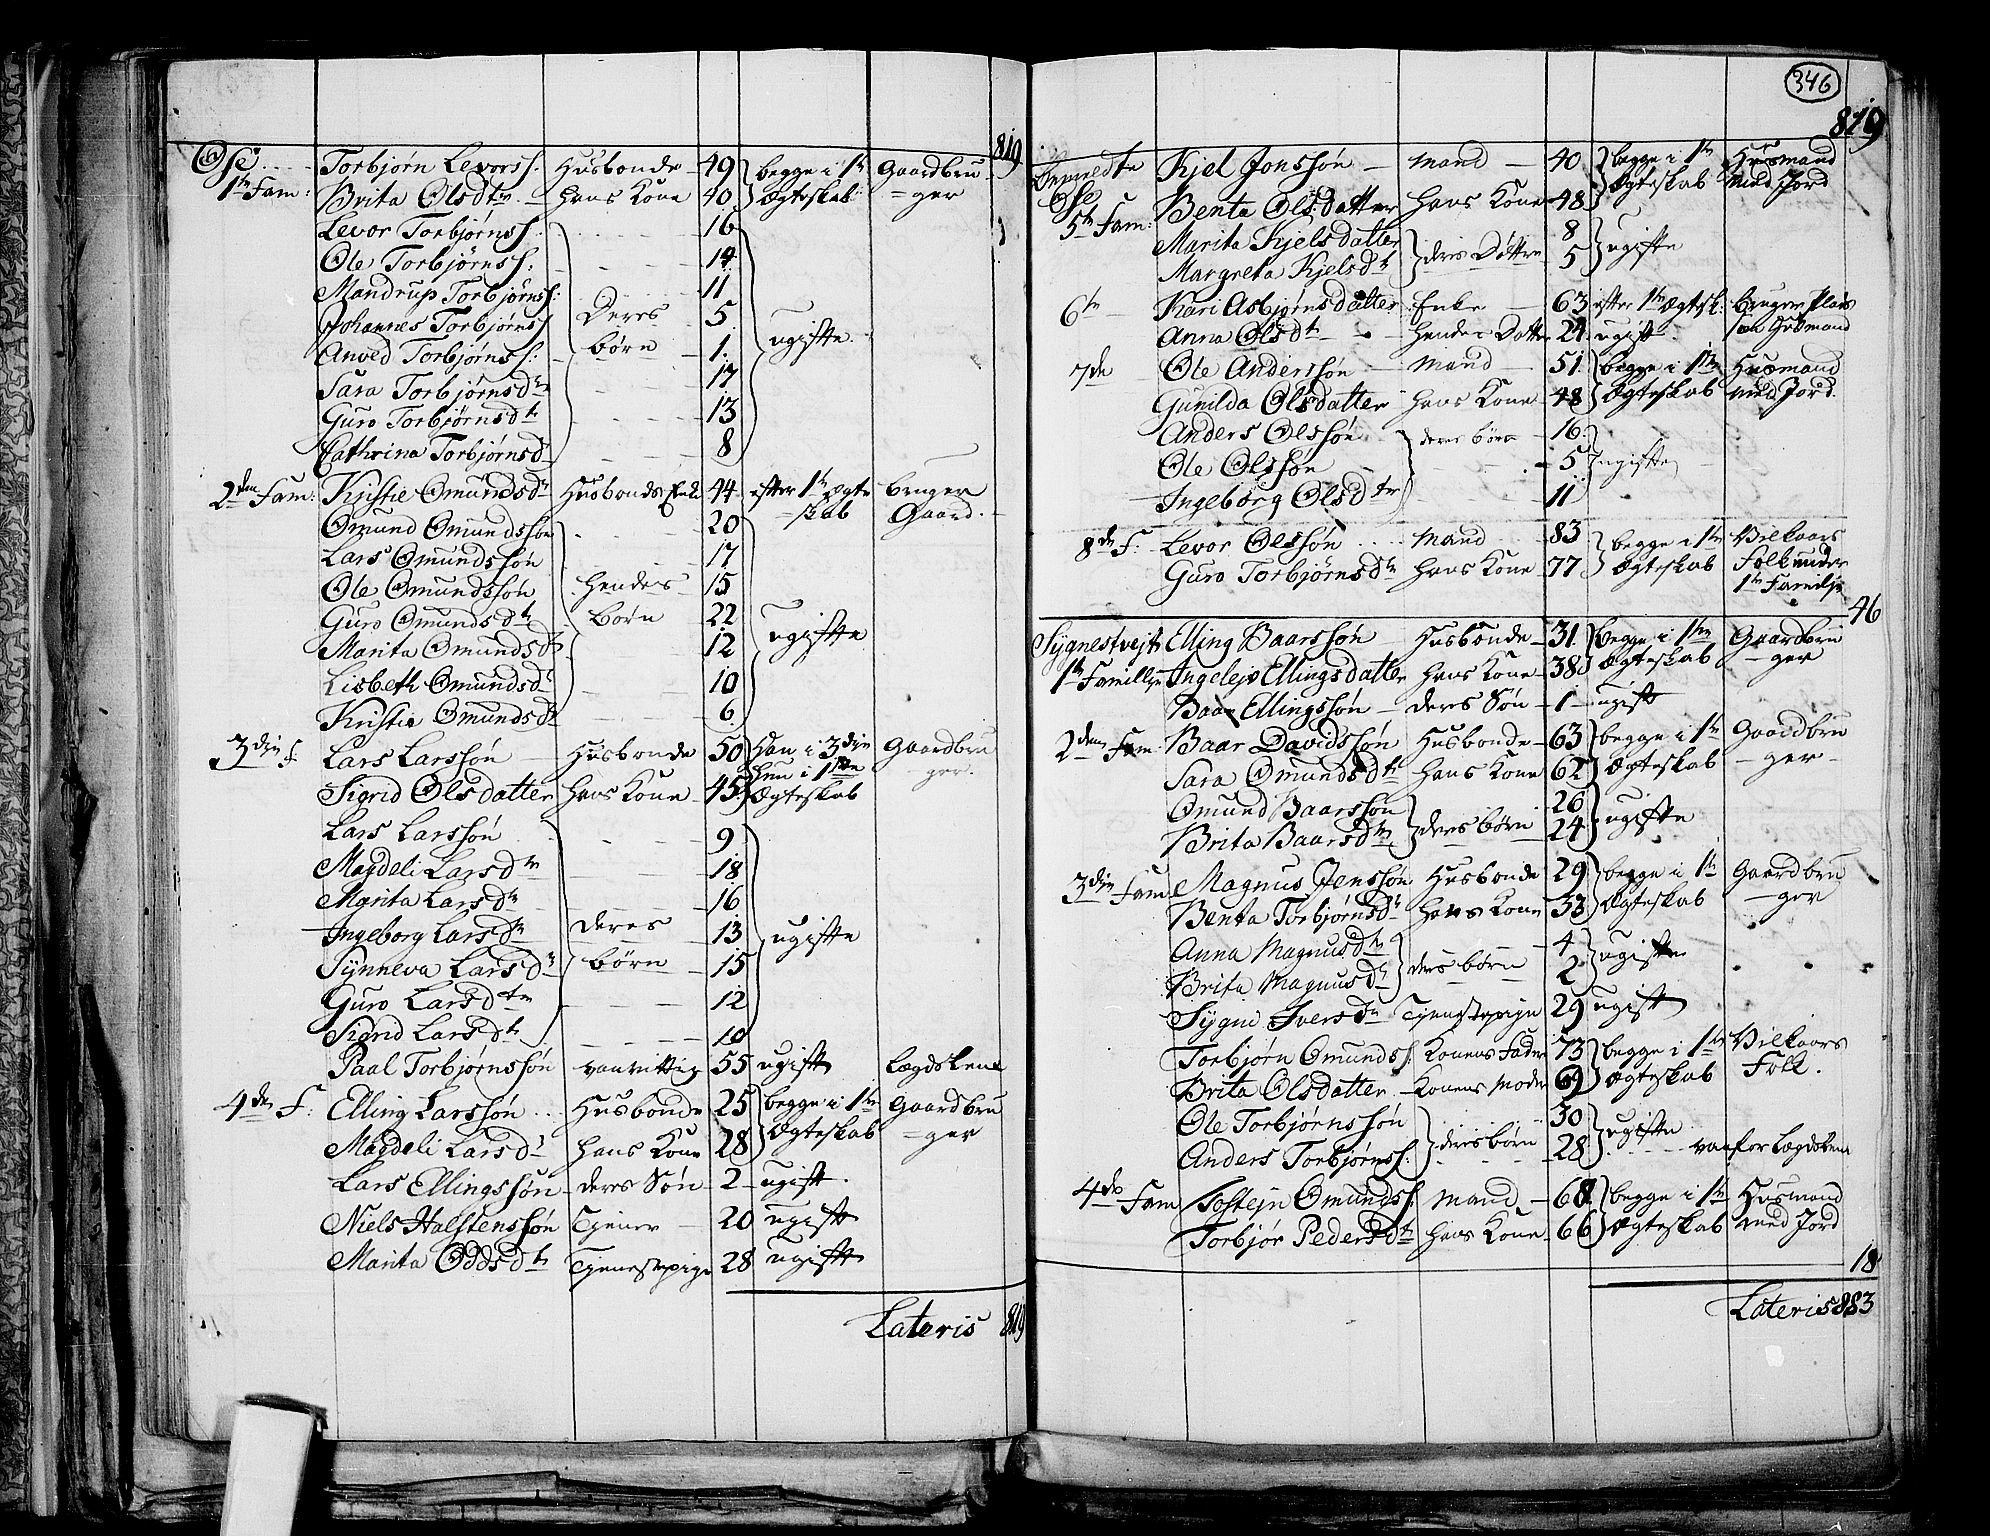 819
Ose Torbjørn Levors: Husbonde 49 begge i 1te Gaardbru
1te Fam: Brita Olsdtr Hans Kone 40 Ægteskab = ger
Levor Torbjørns: 16
Ole Torbjørns: 14
Mandrup Torbjørns: 11
Johannes Torbjørns: Deres 5 ugifte
Anved Torbjørns: børn 1
Sara Torbjørnsdtr 17
Guro Torbjørnsdtr 13
Cathrina Torbjørnsdtr 8
2den Fam: Kristie Omundsdtr Husbonds Enke 44 efter 1te Ægte bruger
skab Gaard
Omund Omundssøn 20
Lars Omundssøn 17
Ole Omundssøn Hendes 15
Guro Omundsdtr børn 22 ugifte
Marita Omundsdtr 12
Lisbeth Omundsdtr 10
Kristie Omundsdtr 6
3die f. Lars Larssøn Husbonde 50 Han i 3die Gaardbru
Hun i 1ste ger.
Sigrid Olsdatter Hans Kone 45 Ægteskab
Lars Larssøn 9
Magdeli Larsdtr 18
Marita Larsdtr 16
Ingeborg Larsdtr deres 13 ugifte
Synneva Larsdtr børn 15
Guro Larsdtr 12
Sigrid Larsdtr 10
Paal Torbjørnssøn vanvittig 55 ugift Lægdslem
4de F: Elling Larssøn Husbonde 25 begge i 1te Gaardbru
Magdeli Larsdtr Hans Kone 28 Ægteskab = ger
Lars Ellingssøn deres Søn 2 ugift
Niels Halstenssøn Tjener 20 ugift
Marita Oddsdtr Tjenestepige 28 ugift
Lateris 819
346
819
Kjel Jonssøn Mand 40 begge i 1te Husmand
Ose Benta Olsdatter Hans Kone 48 Ægteskab med Jord
5te Fam: Marita Kjelsdatter deres Døttre 8 ugifte
Margreta Kjelsdtr 5
6te Kari Asbjørnsdatter Enke 63 efter 1te Ægtesk: bruger Plads
Anna Olsdtr Hendes Dotter 24 ugift som Husmand
7de Ole Anderssøn Mand 51 begge i 1te Husmand
Gunilda Olsdatter Hans Kone 48 Ægteskab med Jord
Anders Olssøn deres børn 16
Ole Olssøn 5 ugifte
Ingeborg Olsdtr 11
8de F: Levor Olssøn Mand 83 begge i 1te Vilkaars
Guro Torbjørnsdtr Hans Kone 77 Ægteskab Folk under
1te Familje
46
Sygnestvejt Elling Baarssøn Husbonde 31 begge i 1te Gaardbru
1te Familje Ingelejv Ellingsdatter Hans Kone 38 Ægteskab - ger
Baar Ellingssøn deres Søn 1 ugift
2den Fam: Baar Davidssøn Husbonde 63 begge i 1te Gaardbru
Sara Omundsdtr Hans Kone 62 Ægteskab - ger -
Omund Baarssøn deres børn 26 ugifte
Brita Baarsdtr 24
3die Fam Magnus Jenssøn Husbonde 29 begge i 1te Gaardbru
Benta Torbjørnsdtr Hans Kone 33 Ægteskab - ger
Anna Magnusdtr deres børn 4 ugifte
Brita Magnusdtr 2
Sygni Iversdtr Tjenestepige 29 ugift
Torbjørn Omunds: Konens Fader 73 begge i 1te Vilkaars
Brita Olsdatter Konens Moder 69 Ægteskab Folk.
Ole Torbjørnssøn deres børn 30 ugifte
Anders Torbjørns: 28 vanfør Lægdslem
4de Fam Tostejn Omunds: Mand 68 begge i 1te Husmand
Torbjør Pedersdtr Hans Kone 66 Ægteskab med Jord
18
Lateris 883